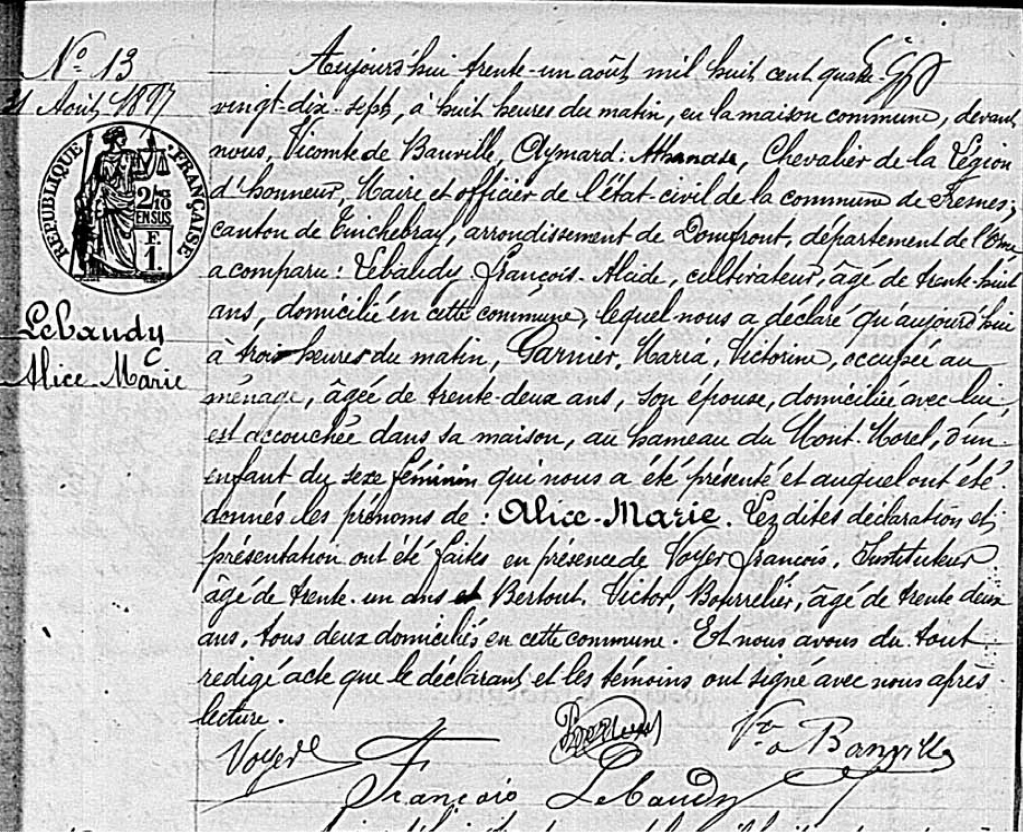 N° 13
31 Août 1897
RÉPUBLIQUE FRANÇAISE
2/10
EN SUS
F.
1.
Lebaudy
Alice-Marie
Aujourd'hui trente-un août mil huit cent quatre-
vingt-dix-sept, à huit heures du matin, en la maison commune, devant
nous, Vicomte de Banville, Aymard: Athanase, Chevalier de la Légion
d'honneur, Maire et officier de l'état-civil de la commune de Fresnes,
canton de Tinchebray, arrondissement de Domfront, département de l'Orne
a comparu: Lebaudy François-Alcide, cultivateur, âgé de trente-huit
ans, domicilié en cette commune, lequel nous a déclaré qu'aujourd'hui
à trois heures du matin, Garnier, Maria, Victorine, occupée au
ménage, âgée de trente-deux ans, son épouse, domiciliée avec lui,
est accouchée dans sa maison, au hameau du Mont-Morel, d'un
enfant du sexe féminin qui nous a été présenté et auquel ont été
donnés les prénoms de: Alice-Marie. Lesdites déclaration et
présentation ont été faites en présence de Voyer François, Instituteur
âgé de trente-un ans et Bertout, Victor, Bourrelier, âgé de trente deux
ans, tous deux domiciliés en cette commune. Et nous avons du tout
redigé acte que le déclarant et les témoins ont signé avec nous après
lecture.
Voyer F Bertout Vte de Banville
François Lebaudy